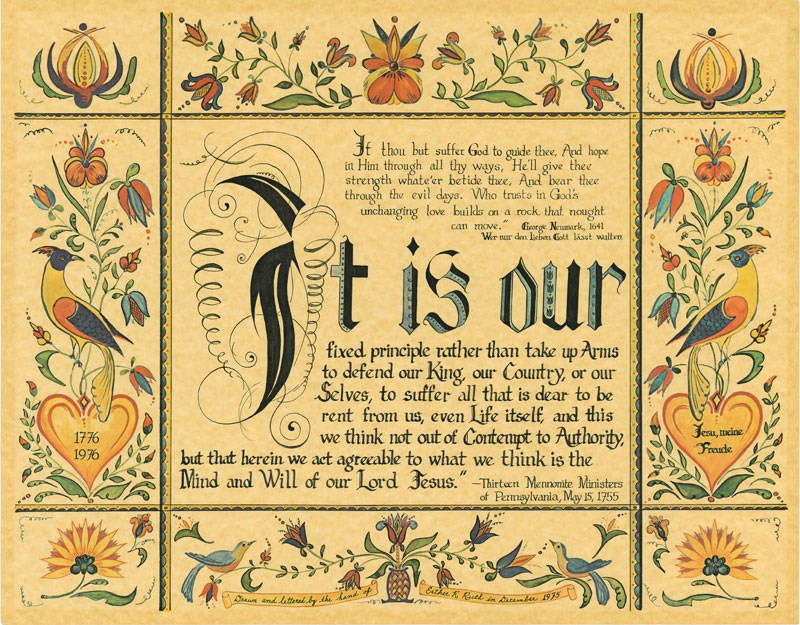 If thou but suffer God to guide thee, And hope
in Him through all thy ways, He'll give thee
strength whate'er betide thee, And bear thee
through the evil days. Who trusts in God's
unchanging love builds on a rock that nought
can move." George Neumark, 1641
Wer nur den lieben Gott lässt walten
It is our
fixed principle rather than take up Arms
to defend our King, our Country, or our
Selves, to suffer all that is dear to be
rent from us, even Life itself, and this
we think not out of Contempt to Authority,
but that herein we act agreeable to what we think is the
Mind and Will of our Lord Jesus."
—Thirteen Mennonite Ministers
of Pennsylvania, May 15, 1755
1776
1976
Jesu, meine
Freude
Drawn and lettered by the hand of
Esther K Ruth in December 1975